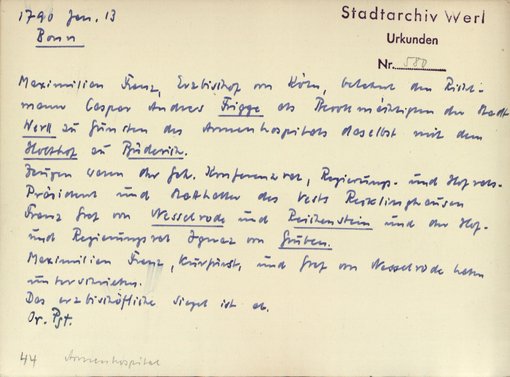 1790 Jan. 13
Bonn
Stadtarchiv Werl
Urkunden
Nr. 580
Maximilian Franz, Erzbischof von Köln, belehnt den Richt-
mann Caspar Andreas Frigge als Bevollmächtigten der Stadt
Werl zu Gunsten des Armenhospitals daselbst mit dem
zu Büderich.
Zeugen waren der Geh. Konferenzrat, Regierungs- und Hofrats-
Präsident und Statthalter des Vests Recklinghausen
Franz Graf von Nesselrode und Reichenstein und der Hof-
und Regierungsrat Ignaz von Gruben.
Maximilian Franz, Kurfürst, und Graf von Nesselrode haben
unterschrieben.
Das erzbischöfliche Siegel ist ab.
Or. Pgt.
44 Armenhospital